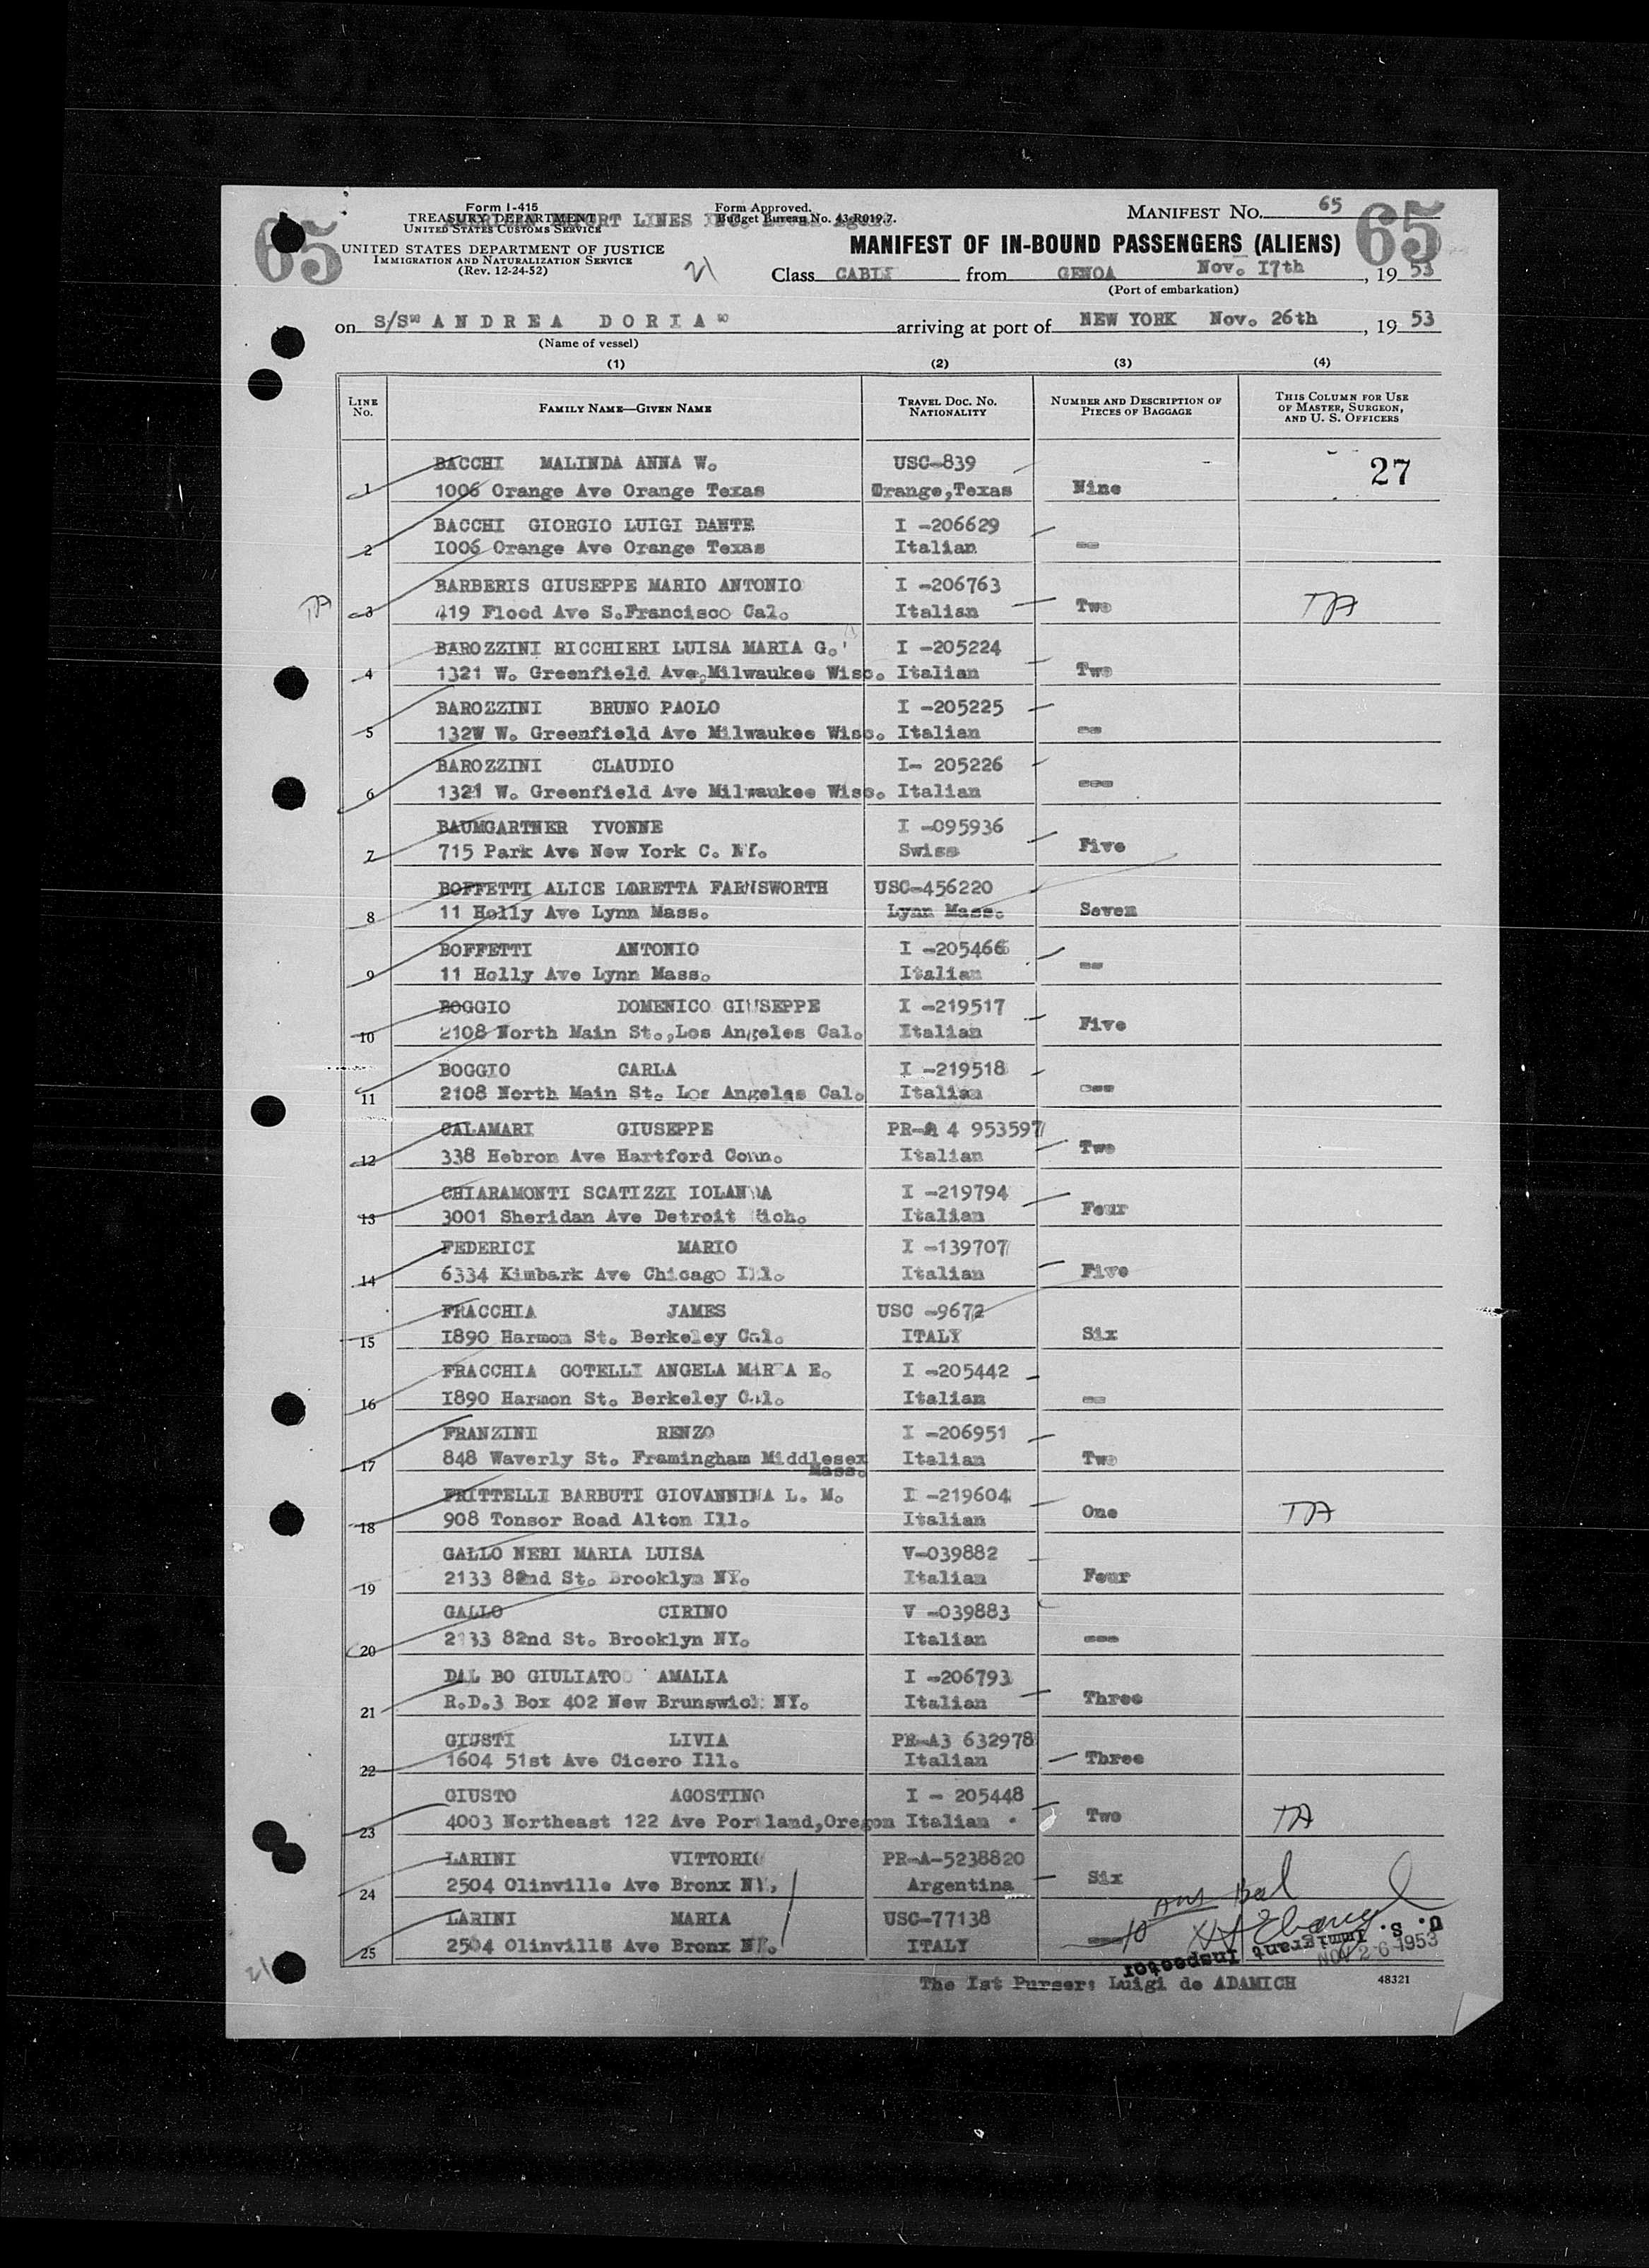 65
Form I-415
TREASURY DEPARTMENT
UNITED STATES CUSTOMS SERVICE
UNITED STATES DEPARTMENT OF JUSTICE
IMMIGRATION AND NATURALIZATION SERVICE
(Rev. 12-24-52)
Form Approved.
Budget Bureau No. 43-R019.7.
LINES
21
MANIFEST NO. 65
65
MANIFEST OF IN-BOUND PASSENGERS (ALIENS)
Class from GENOA Nov. I7th, 19 53
(Port of embarkation)
on S/S" A N D R E A D O R I A " arriving at port of NEW YORK Nov. 26th, 19 53
(Name of vessel)
(1) (2) (3) (4)
LINE No. FAMILY NAME—GIVEN NAME TRAVEL DOC. NO. NATIONALITY NUMBER AND DESCRIPTION OF PIECES OF BAGGAGE THIS COLUMN FOR USE OF MASTER, SURGEON, AND U. S. OFFICERS
BACCHI MALINDA ANNA W. USC-839 27
1 1006 Orange Ave Orange Texas Orange,Texas Nine
BACCHI GIORGIO LUIGI DANTE I -206629
2 I006 Orange Ave Orange Texas Italian --
BARBERIS GIUSEPPE MARIO ANTONIO I -206763
TA 3 419 Flood Ave S.Francisco Cal. Italian Two TA
BAROZZINI RICCHIERI LUISA MARIA G. I -205224
4 1321 W. Greenfield Ave,Milwaukee Wisc. Italian Two
BAROZZINI BRUNO PAOLO I -205225
5 132W W. Greenfield Ave Milwaukee Wisc. Italian --
BAROZZINI CLAUDIO I- 205226
6 1321 W. Greenfield Ave Milwaukee Wisc. Italian ---
BAUMGARTNER YVONNE I -095936
7 715 Park Ave New York C. NY. Swiss Five
BOFFETTI ALICE LORETTA FARNSWORTH USC-456220
8 11 Holly Ave Lynn Mass. Lynn Mass. Seven
BOFFETTI ANTONIO I -205466
9 11 Holly Ave Lynn Mass. Italian --
BOGGIO DOMENICO GIUSEPPE I -219517
10 2108 North Main St.,Los Angeles Cal. Italian Five
BOGGIO CARLA I -219518
11 2108 North Main St. Los Angeles Cal. Italian ---
CALAMARI GIUSEPPE PR-A 4 953597
12 338 Hebron Ave Hartford Conn. Italian Two
CHIARAMONTI SCATIZZI IOLANDA I -219794
13 3001 Sheridan Ave Detroit Mich. Italian Four
FEDERICI MARIO I -139707
14 6334 Kimbark Ave Chicago Ill. Italian Five
FRACCHIA JAMES USC -9672
15 I890 Harmon St. Berkeley Cal. ITALY Six
FRACCHIA GOTELLI ANGELA MARIA E. I -205442
16 I890 Harmon St. Berkeley Cal. Italian --
FRANZINI RENZO I -206951
17 848 Waverly St. Framingham Middlesex Italian Two
Mass.
FRITTELLI BARBUTI GIOVANNINA L. M. I -219604
18 908 Tonsor Road Alton Ill. Italian One TA
GALLO NERI MARIA LUISA V-039882
19 2133 82nd St. Brooklyn NY. Italian Four
GALLO CIRINO V -039883
20 2133 82nd St. Brooklyn NY. Italian ---
DAL BO GIULIATO AMALIA I -206793
21 R.D.3 Box 402 New Brunswick NY. Italian Three
GIUSTI LIVIA PR-A3 632978
22 1604 51st Ave Cicero Ill. Italian Three
GIUSTO AGOSTINO I - 205448
23 4003 Northeast 122 Ave Portland,Oregon Italian Two TA
LARINI VITTORIO PR-A-5238820
24 2504 Olinville Ave Bronx NY, Argentina Six
LARINI MARIA USC-77138
25 2504 Olinville Ave Bronx NY. ITALY ---
U. S. Immigrant Inspector
NOV 26 1953
21
The Ist Purser: Luigi de ADAMICH
48321